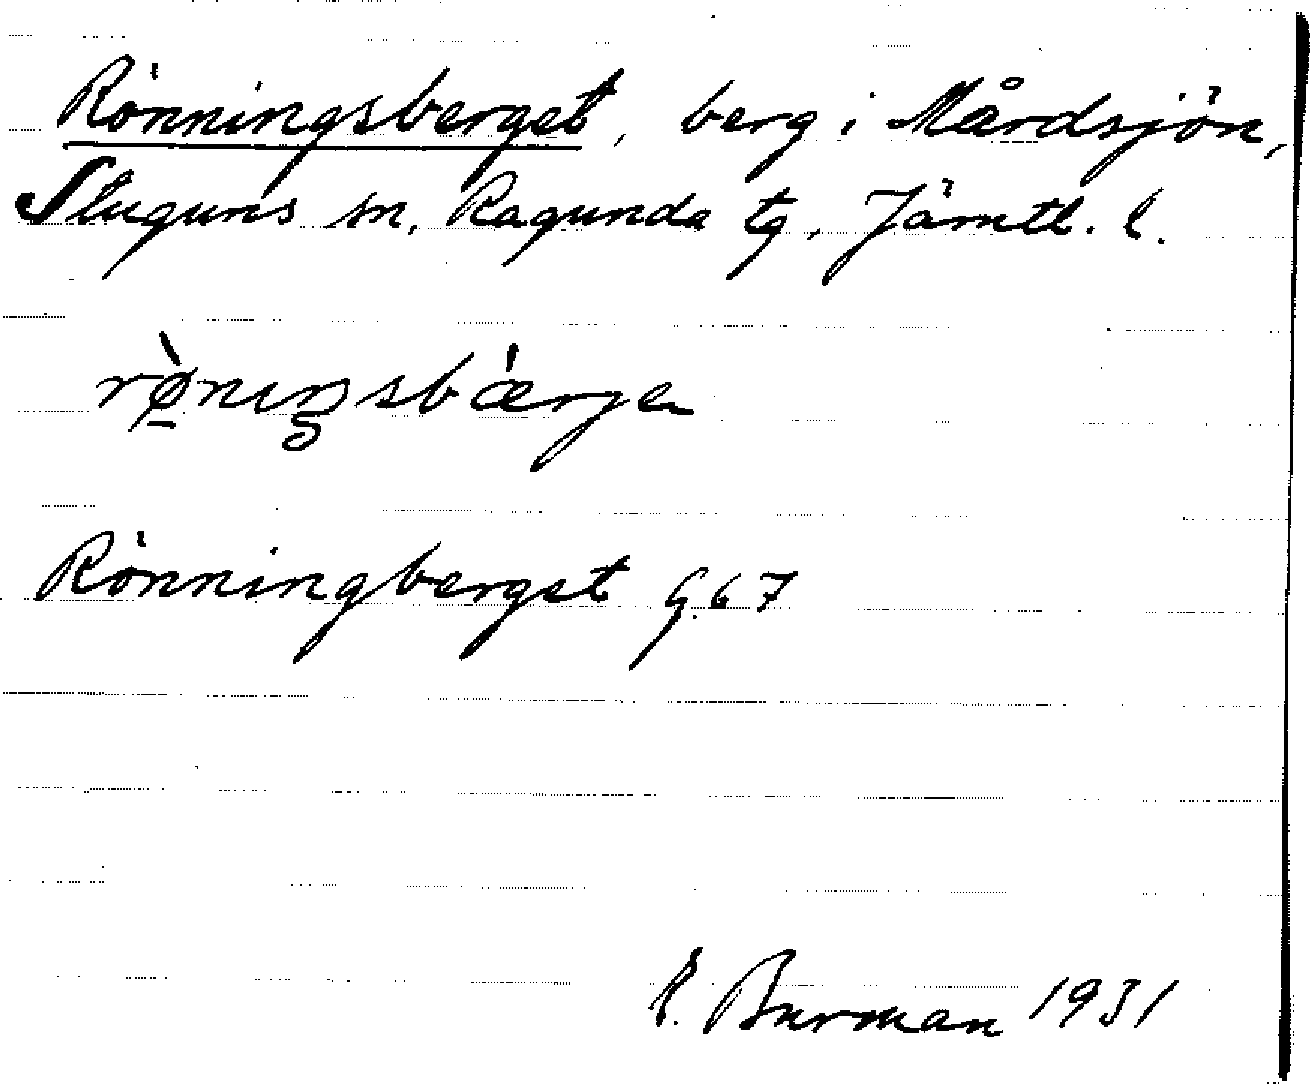 Rönningsberget, berg i Mårdsjön,
Stuguns sn, Ragunda tg, Jämtl. l.
rø̠̀niŋsbǽrjen
Rönningberget G.67
E. Burman 1931